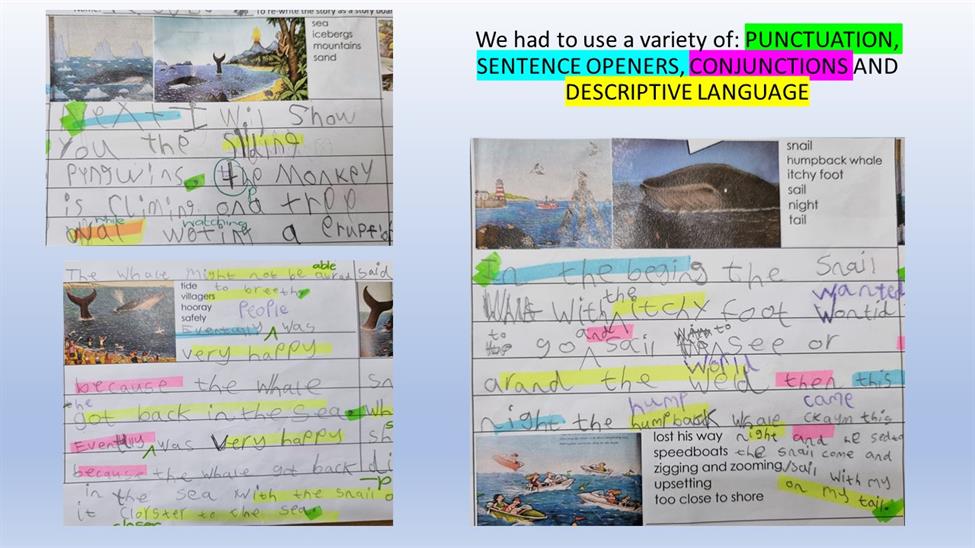 We had to use a variety of: PUNCTUATION,
SENTENCE OPENERS, CONJUNCTIONS AND
DESCRIPTIVE LANGUAGE
To re-write the story as a story boar
sea
icebergs
mountains
sand
Next I Wil Show
You the Sliding
Pyngwins. the Monkey
is Climing and trep
while watching
a erupti
The Whale might not be able said
tide
villagers
hooray
safely
to breeth
People
Eventally was
very happy
because the Whale
the
got back in the Sea. Wh
Eventlly was Very happy
because the whale got back
in the sea with the snail
it Clorster to the sea.
closer
snail
humpback whale
itchy foot
sail
night
tail
In the beging the Snail
With the itchy foot wanted
Wontid
to go and Sail to see or
world
arand the Weld then this
hump came
night the humpback Whale this
lost his way
speedboats
zigging and zooming
upsetting
too close to shore
night and he
the snail come and
sail with my
on my tail.